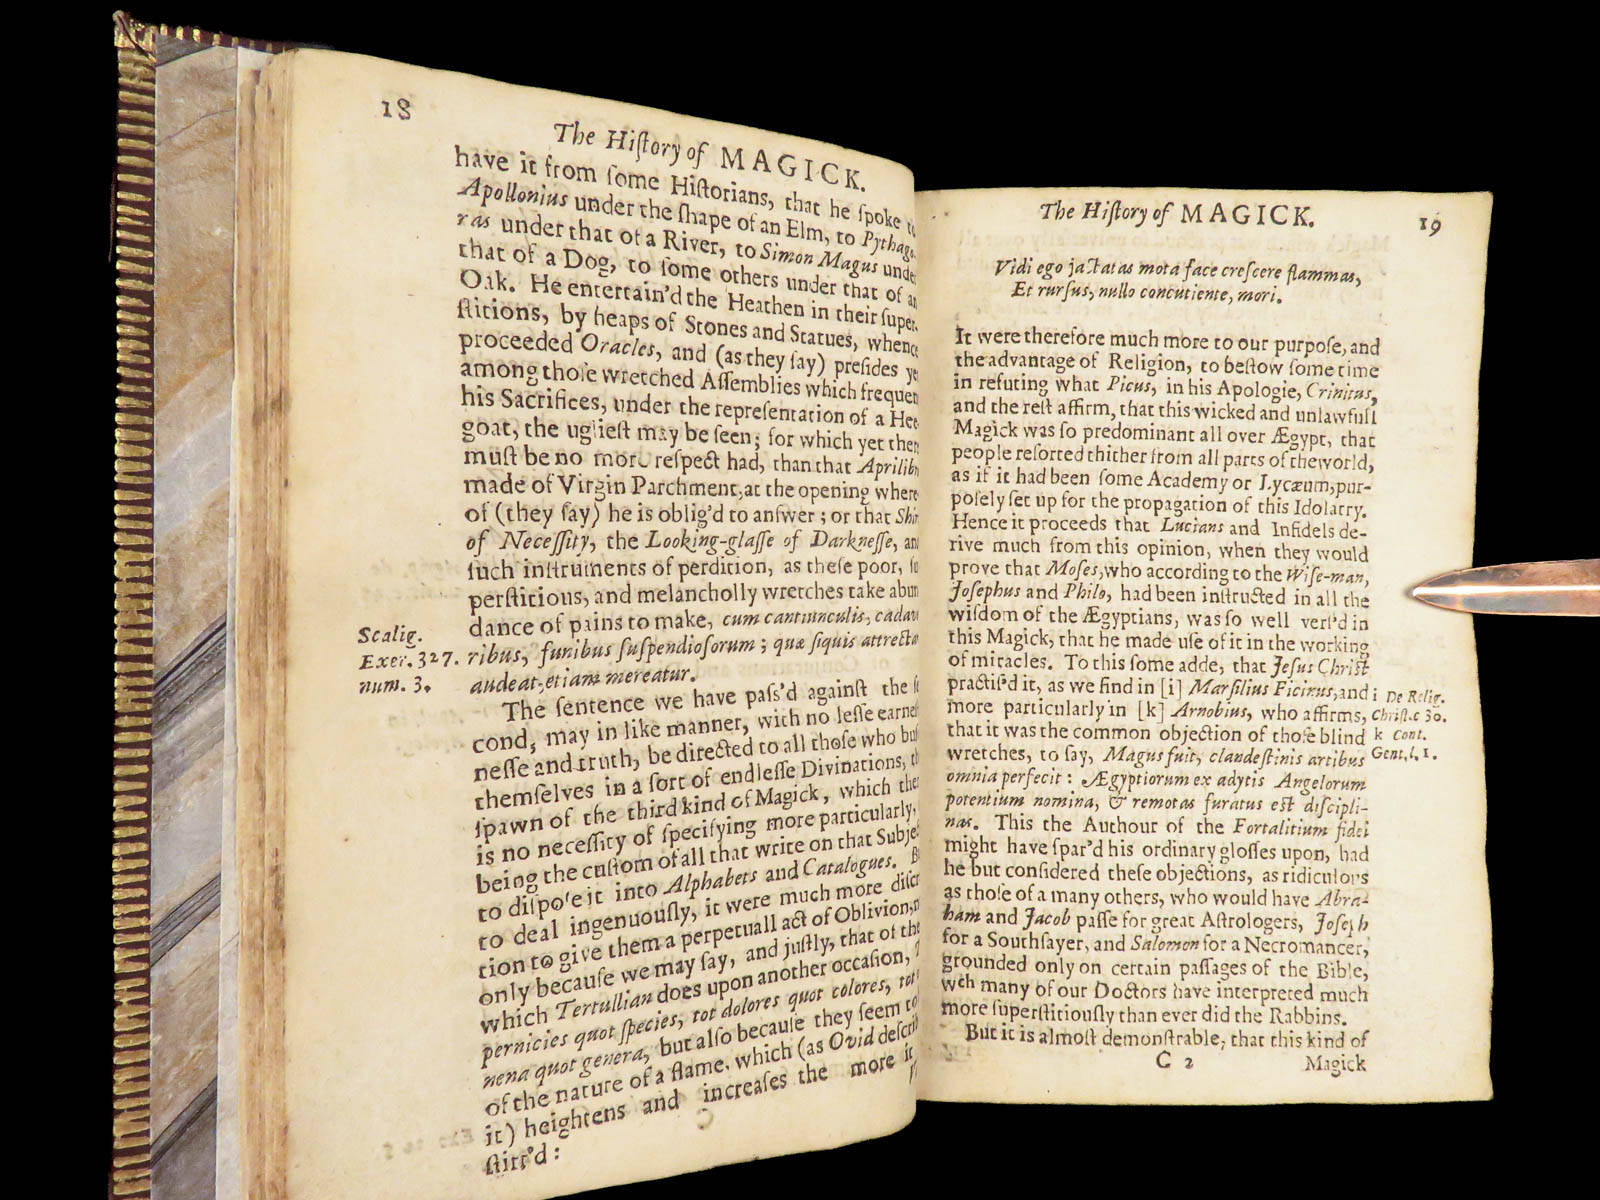 18
The Hiſtory of MAGICK.
have it from ſome Hiſtorians, that he ſpoke to
Apollonius under the ſhape of an Elm, to Pythago-
ras under that of a River, to Simon Magus under
that of a Dog, to ſome others under that of an
Oak. He entertain'd the Heathen in their ſuper-
ſtitions, by heaps of Stones and Statues, whence
proceeded Oracles, and (as they ſay) preſides ye
among thoſe wretched Aſſemblies which frequen
his Sacrifices, under the repreſentation of a Hee-
goat, the uglieſt may be ſeen; for which yet ther
muſt be no more reſpect had, than that
made of Virgin Parchment, at the opening where-
of (they ſay) he is oblig'd to anſwer; or that
of Neceſſity, the Looking-glaſſe of Darkneſſe, an
ſuch inſtruments of perdition, as theſe poor, ſu
perſtitious, and melancholly wretches take abun
dance of pains to make, cum cantiunculis, cadav
ribus, funibus ſuſpendioſorum; quæ ſiquis attrecta
audeat, etiam mereatur.
Scalig.
Exer. 327.
num. 3.
The ſentence we have paſs'd againſt the ſe
cond, may in like manner, with no leſſe earneſ
neſſe and truth, be directed to all thoſe who buſ
themſelves in a ſort of endleſſe Divinations, th
ſpawn of the third kind of Magick, which the
is no neceſſity of ſpecifying more particularly,
being the cuſtom of all that write on that Subje
to diſpoſe it into Alphabets and Catalogues. B
to deal ingenuouſly, it were much more diſcr
tion to give them a perpetuall act of Oblivion, n
only becauſe we may ſay, and juſtly, that of the
which Tertullian does upon another occaſion,
pernicies quot ſpecies, tot dolores quot colores, tot
nena quot genera, but alſo becauſe they ſeem to
of the nature of a flame, which (as Ovid deſcrib
it) heightens and increaſes the more it
ſtirr'd:
C
The Hiſtory of MAGICK.
19
Vidi ego jactatas mota face creſcere flammas,
Et rurſus, nullo concutiente, mori.
It were therefore much more to our purpoſe, and
the advantage of Religion, to beſtow ſome time
in refuting what Picus, in his Apologie, Crinitus,
and the reſt affirm, that this wicked and unlawfull
Magick was ſo predominant all over Ægypt, that
people reſorted thither from all parts of the world,
as if it had been ſome Academy or Lycæum, pur-
poſely ſet up for the propagation of this Idolatry.
Hence it proceeds that Lucians and Infidels de-
rive much from this opinion, when they would
prove that Moſes, who according to the Wiſe-man,
Joſephus and Philo, had been inſtructed in all the
wiſdom of the Ægyptians, was ſo well verſ'd in
this Magick, that he made uſe of it in the working
of miracles. To this ſome adde, that Jeſus Chriſt
practiſ'd it, as we find in [i] Marſilius Ficinus, and
more particularly in [k] Arnobius, who affirms,
that it was the common objection of thoſe blind
wretches, to ſay, Magus fuit, clandeſtinis artibus
omnia perfecit: Ægyptiorum ex adytis Angelorum
potentium nomina, & remotas furatus eſt diſcipli-
nas. This the Authour of the Fortalitium fidei
might have ſpar'd his ordinary gloſſes upon, had
he but conſidered theſe objections, as ridiculous
as thoſe of a many others, who would have Abra-
ham and Jacob paſſe for great Aſtrologers, Joſeph
for a Southſayer, and Salomon for a Necromancer,
grounded only on certain paſſages of the Bible,
wch many of our Doctors have interpreted much
more ſuperſtitiouſly than ever did the Rabbins.
But it is almoſt demonſtrable, that this kind of
i De Relig.
Chriſt. c 30.
k Cont.
Gent. l. 1.
C 2
Magick